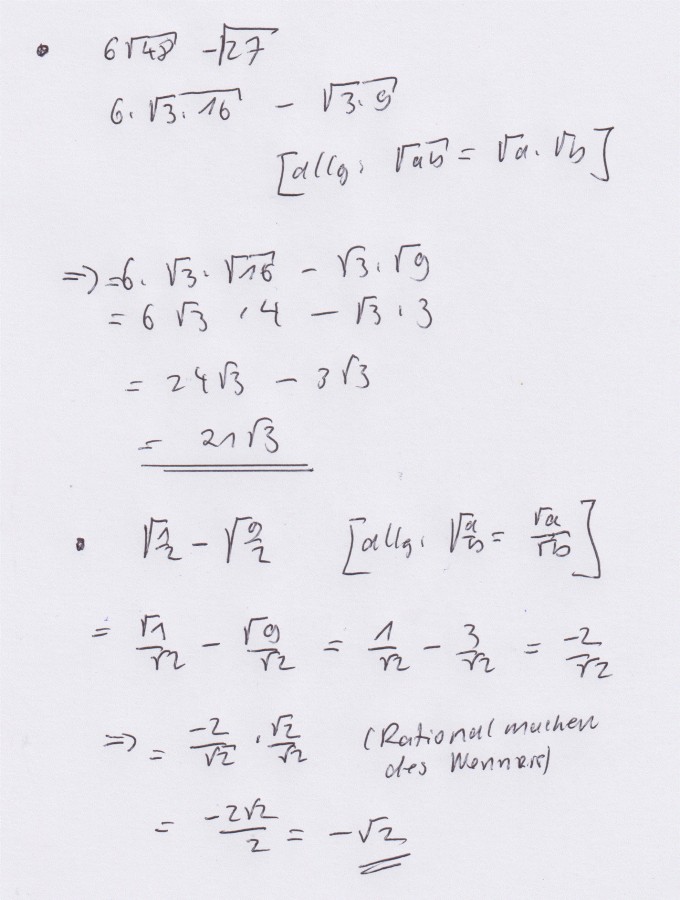 • 6√48 - √27
6 · √3 · 16 - √3 · 9
[allg. √ab = √a · √b]
=> = 6 · √3 · √16 - √3 · √9
= 6 √3 · 4 - √3 · 3
= 24√3 - 3√3
= 21√3
• √1/2 - √9/2 [allg. √a/b = √a/√b]
= √1/√2 - √9/√2 = 1/√2 - 3/√2 = -2/√2
=> = -2/√2 · √2/√2 (Rational machen
des Nenners)
= -2√2/2 = -√2